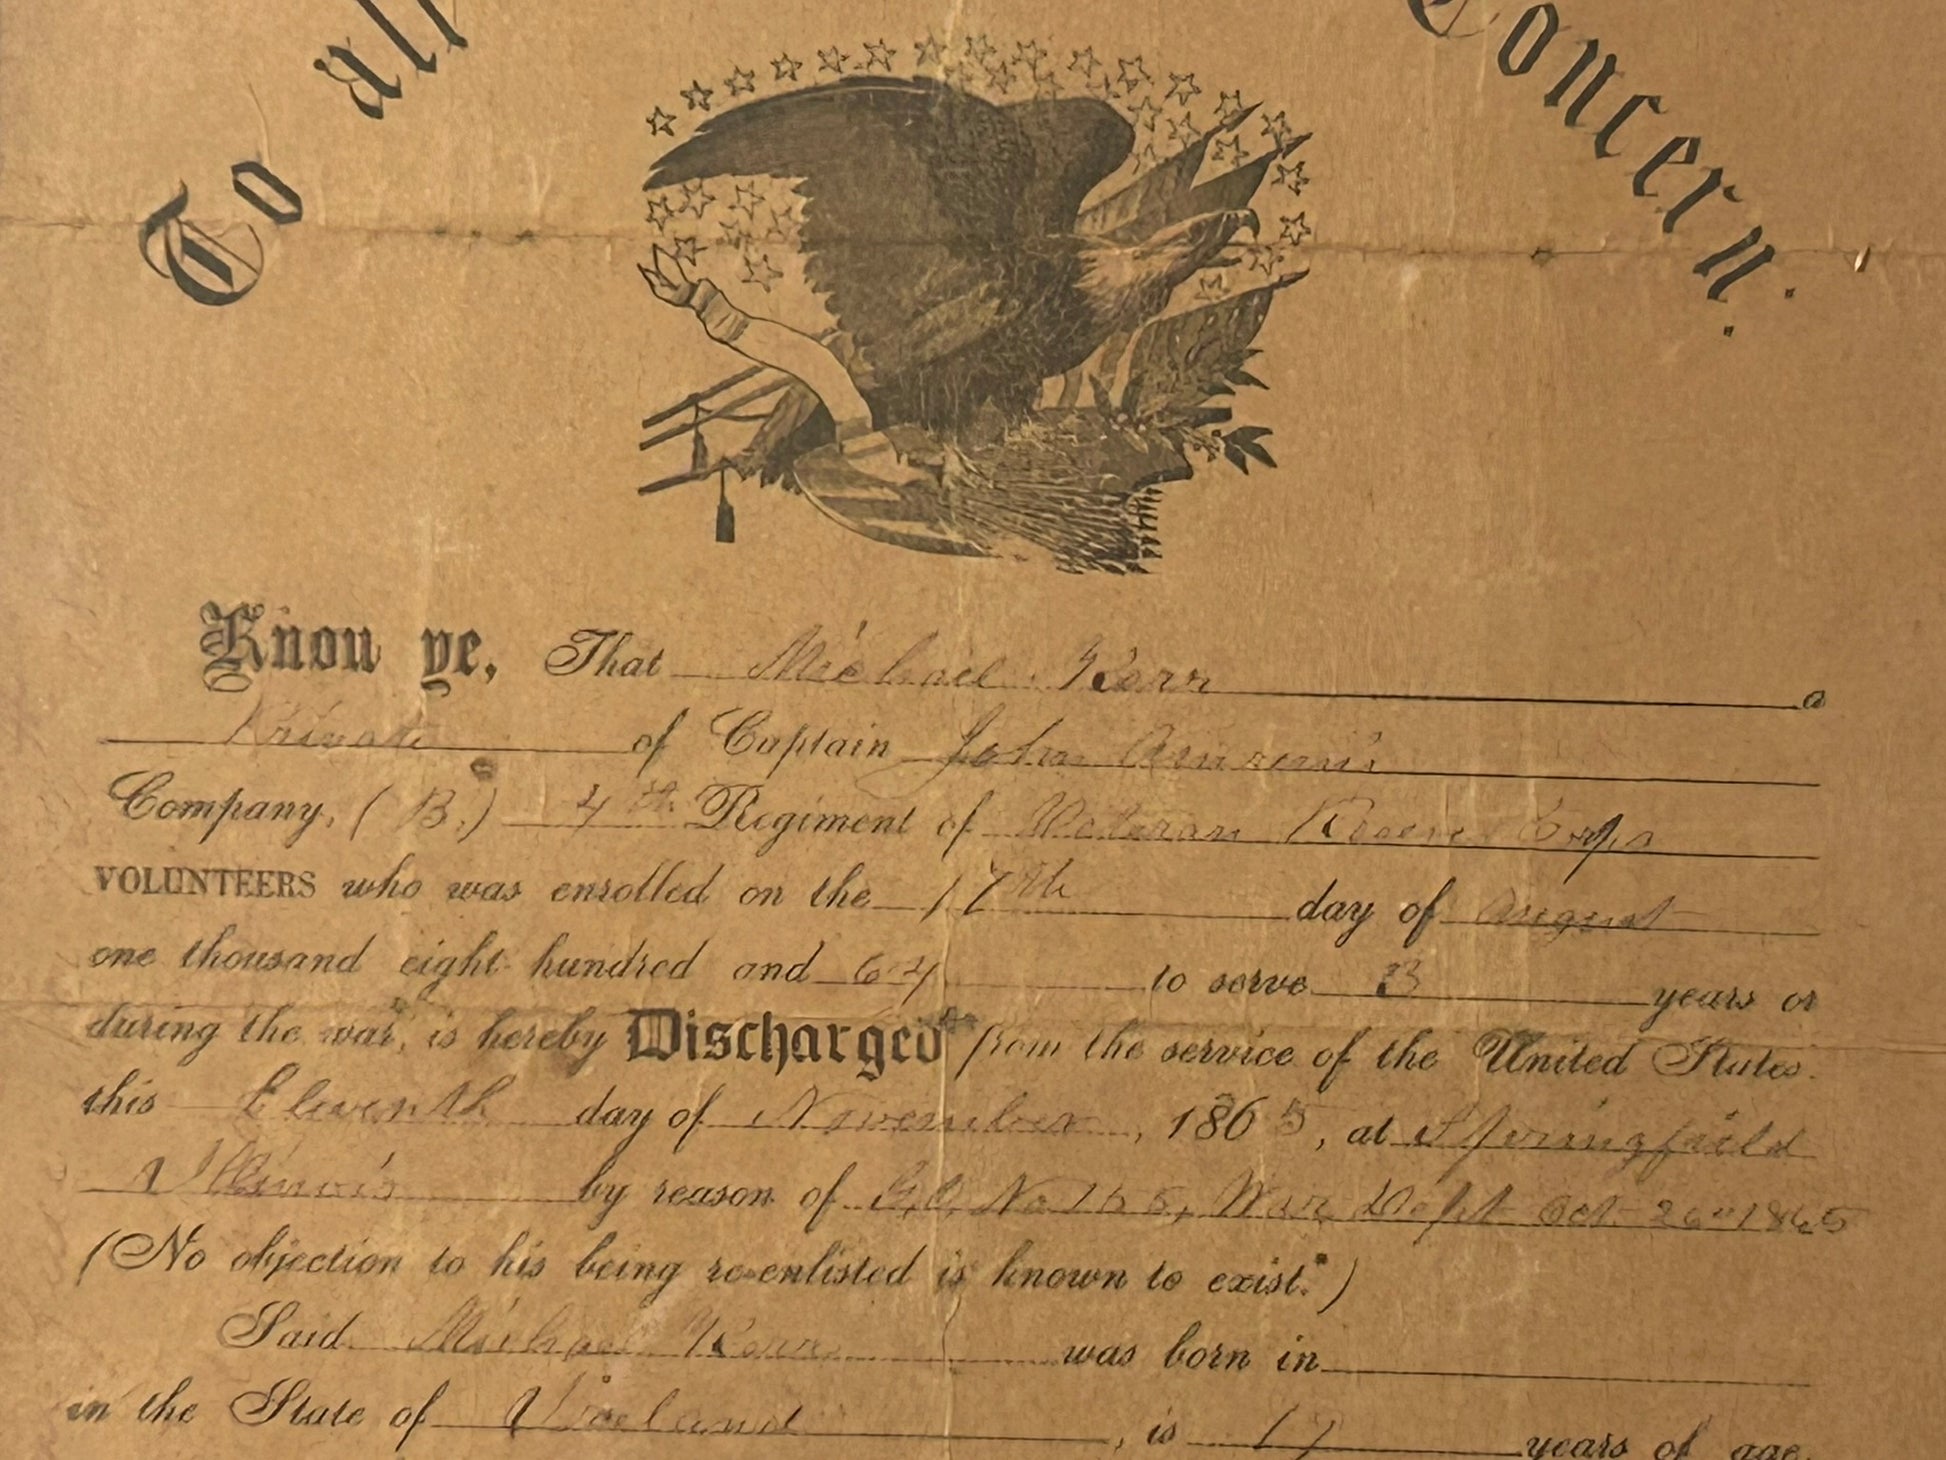 To all Concern.
Know ye, That Michael Karr a
Private of Captain John
Company, (B.) 4th Regiment of Veteran Reserve Corps
VOLUNTEERS who was enrolled on the 17th day of August
one thousand eight hundred and 64 to serve 3 years or
during the war, is hereby Discharged from the service of the United States.
this Eleventh day of November, 1865, at Springfield
Illinois by reason of G.O. No 155, War Dept Oct 26" 1865
(No objection to his being re-enlisted is known to exist.*)
Said Michael Karr was born in
in the State of Ireland, is 17 years of age,